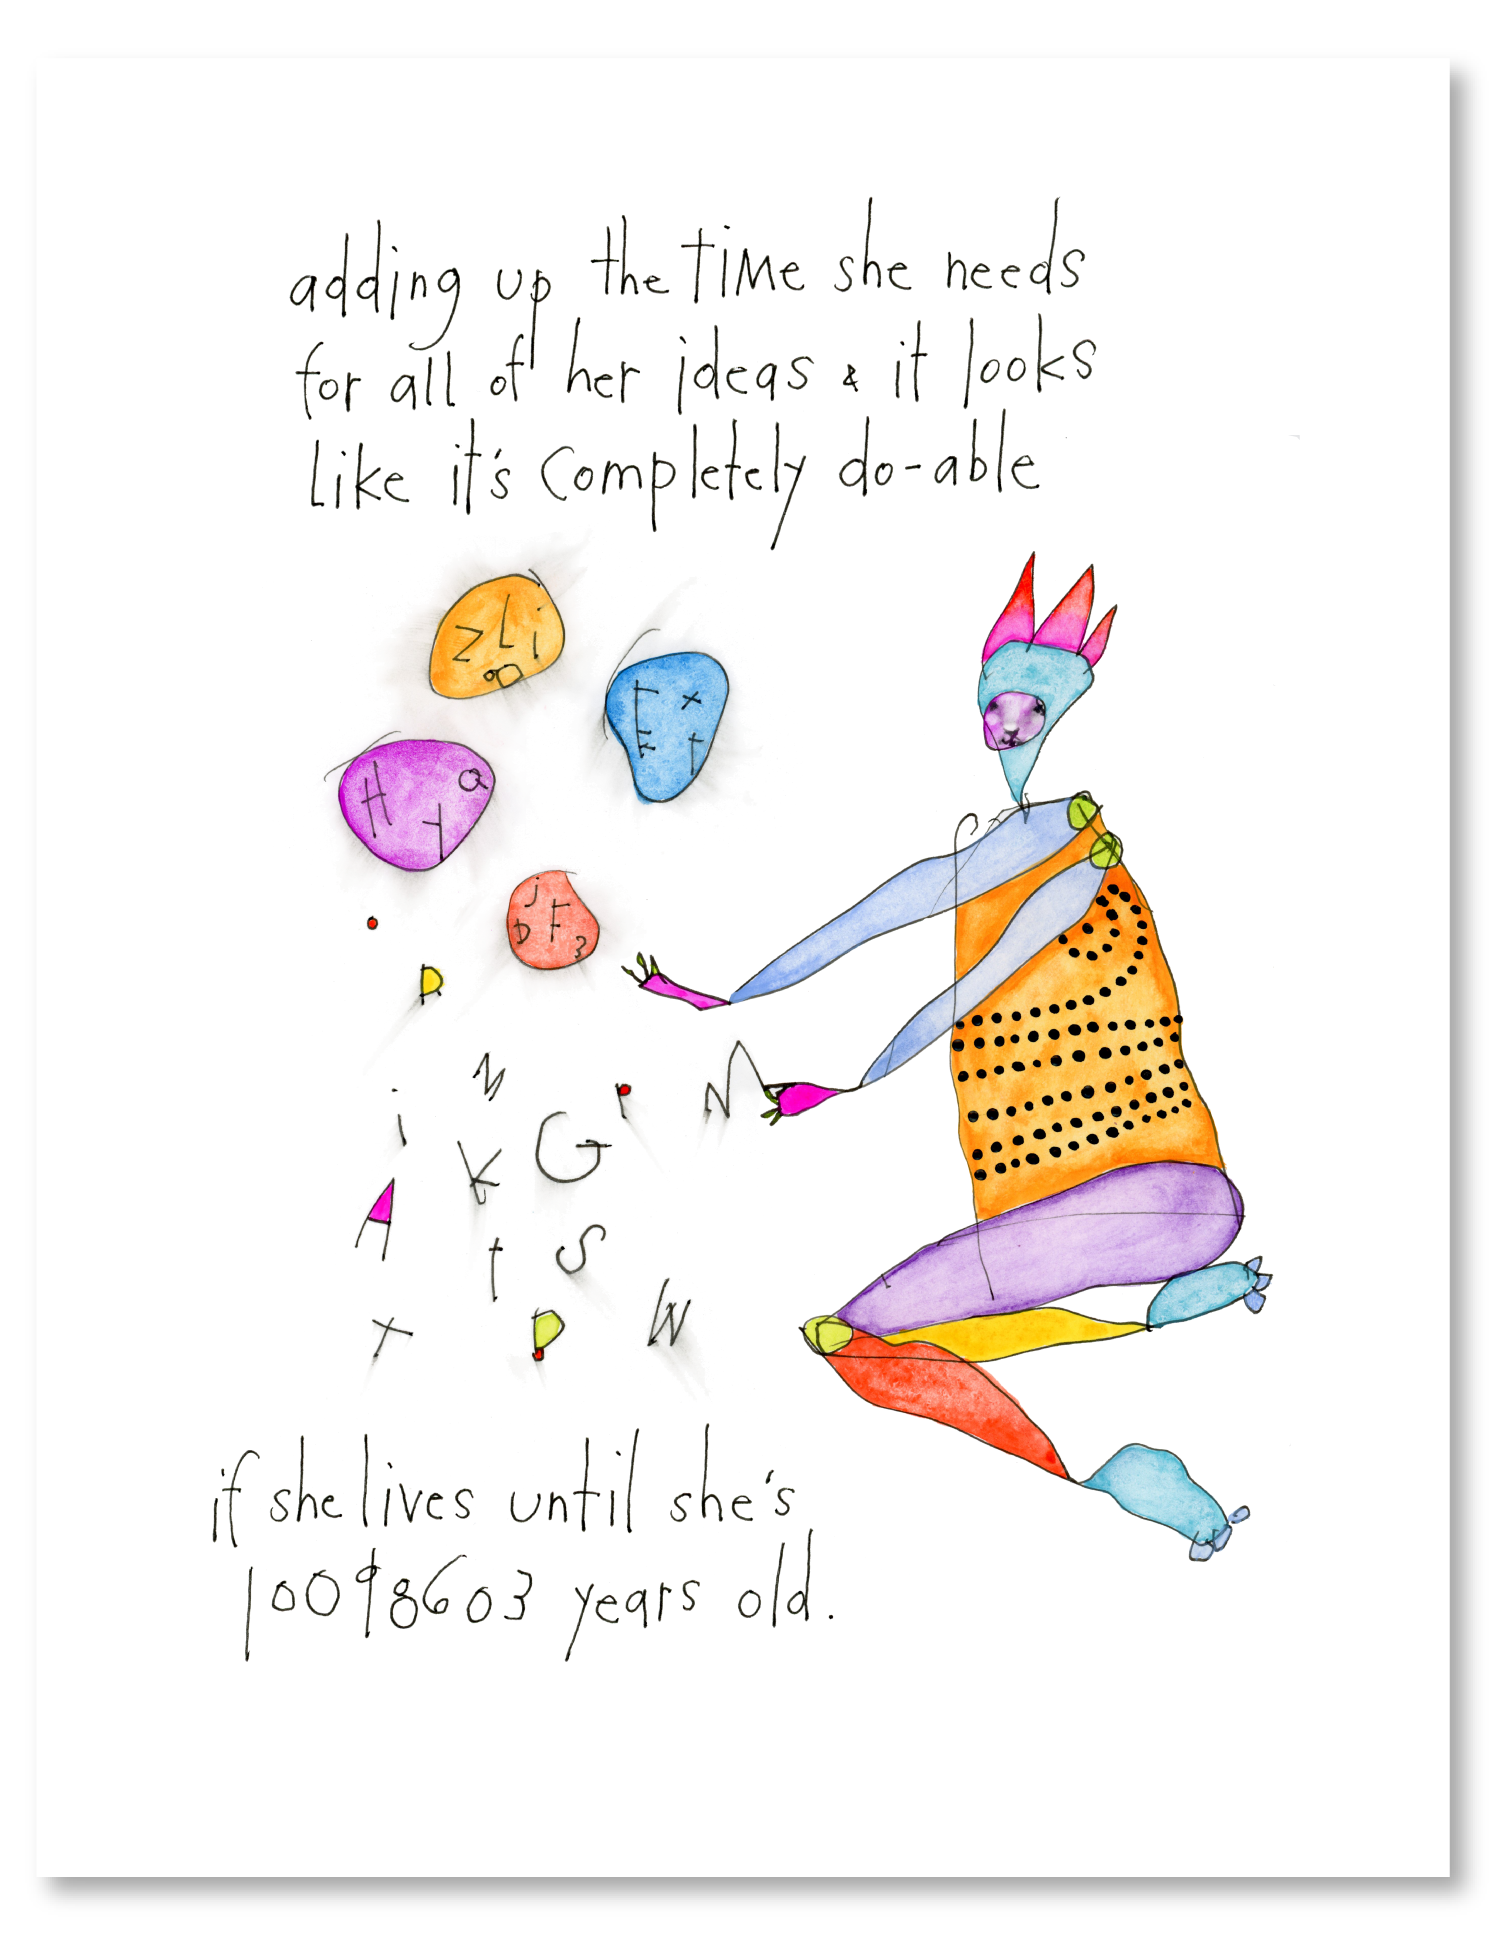 adding up the TIMe she needs
for all of her ideas & it looks
Like it's completely do-able
z L i
E x
t
H Q
y
j
D F 3
D
i N P M
K G
A t S
T P W
if she lives until she's
10098603 years old.